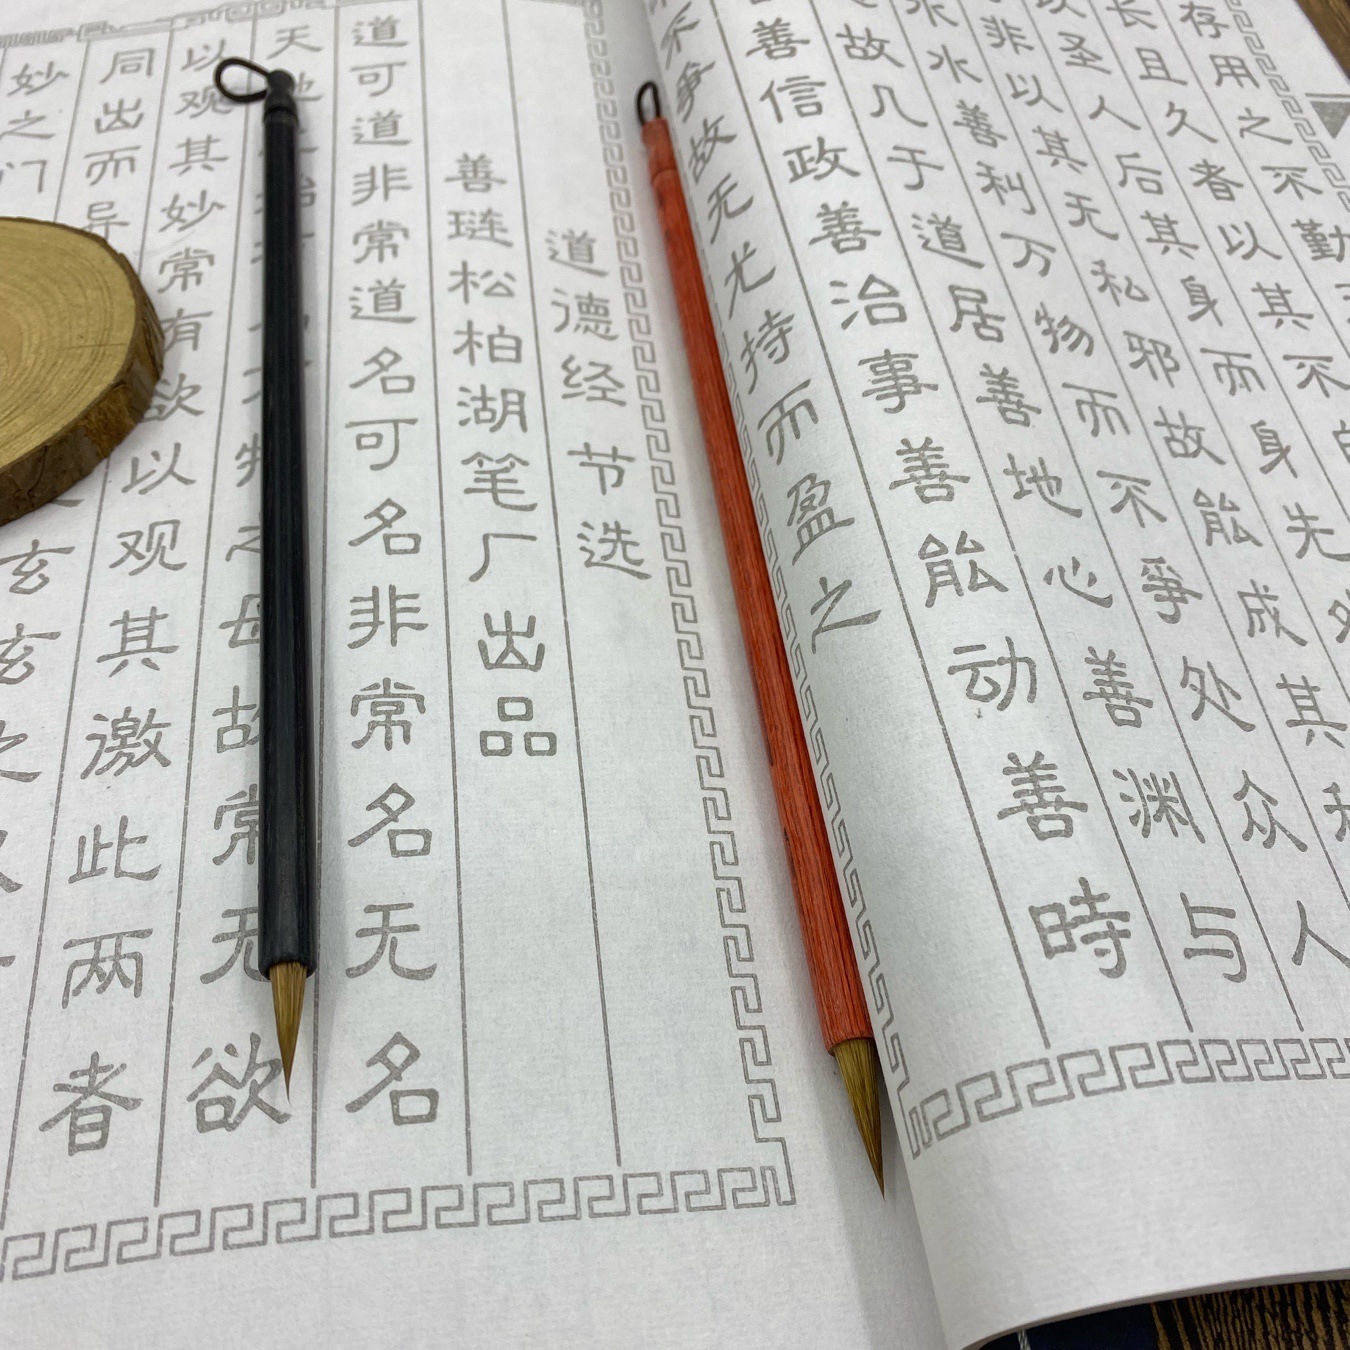 存用之不勤
长且久者以其不自
以圣人后其身而身先
非以其无私邪故能成其私
水水善利万物而不爭处众人
故几于道居善地心善渊与
善信政善治事善能动善時
不爭故无尤持而盈之
道德经 节选
善琏松柏湖笔厂出品
道可道非常道名可名非常名无名
天之母故常无欲
以观其妙常有欲以观其激此两者
同出而异玄玄之
妙之门